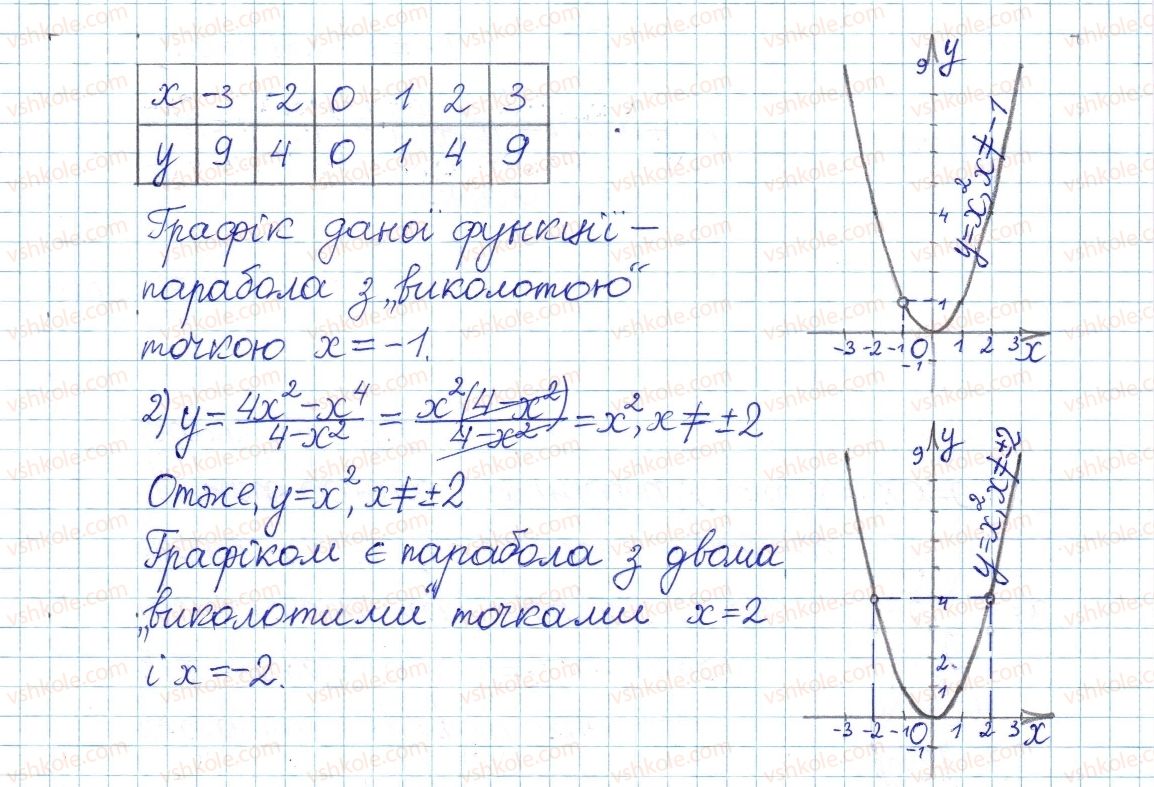 x -3 -2 0 1 2 3
y 9 4 0 1 4 9
Графік даної функції –
парабола з „виколотою“
точкою x = -1.
2) y = (4x² - x⁴)/(4 - x²) = x²(4 - x²)/(4 - x²) = x², x ≠ ±2
Отже, y = x², x ≠ ±2
Графіком є парабола з двома
„виколотими“ точками x = 2
і x = -2.
y
9
4
1
-3 -2 -1 0 1 2 3 x
-1
y = x², x ≠ -1
y
9
4
2
1
-3 -2 -1 0 1 2 3 x
-1
y = x², x ≠ ±2
vshkole.com